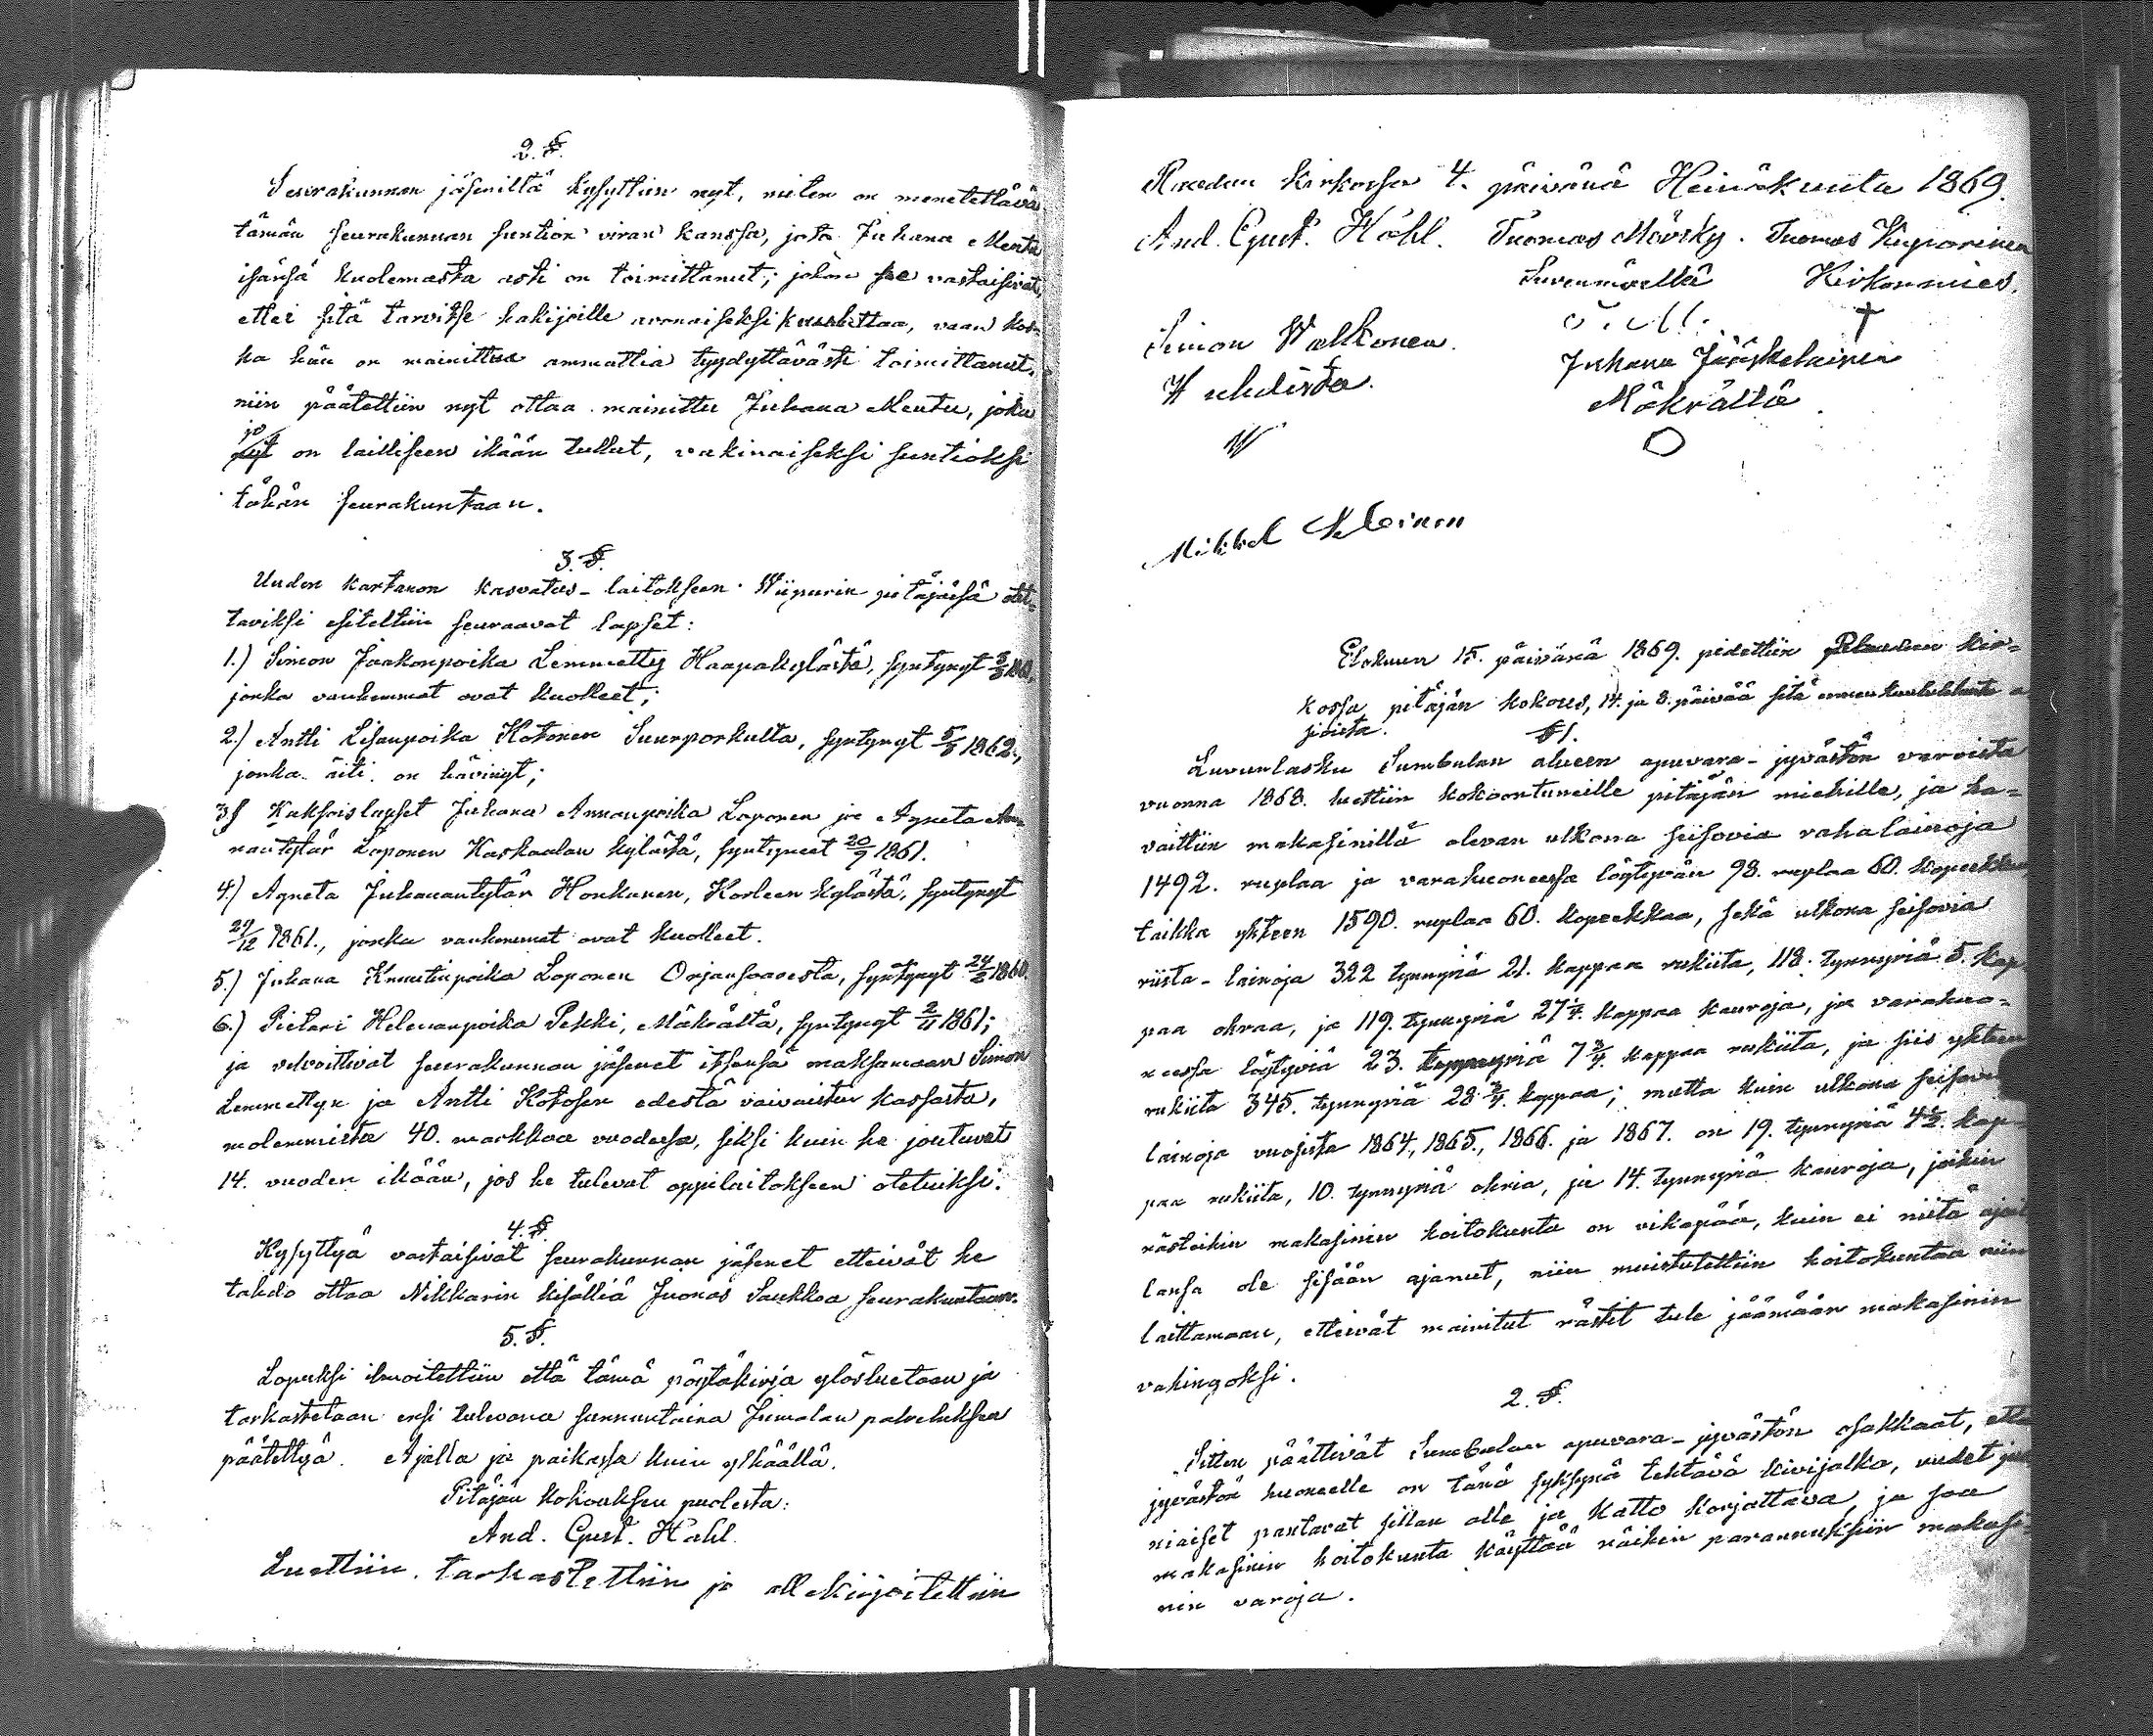 2. §.
Seurakunnan jäseniltä kysyttiin nyt, miten on meneteltävä
tämän seurakunnan suntion viran kanssa, jota Juhana Mentu
isänsä kuolemasta asti on toimittanut; johon he vastaisivat,
ettei sitä tarvitse hakijoille avonaiseksi kuuluttaa, vaan kos-
ka hän on mainittua ammattia tyydyttävästi toimittanut,
niin päätettiin nyt ottaa mainittu Juhana Mentu, joka
jo on lailliseen ikään tullut, vakinaiseksi suntioksi
tähän seurakuntaan.
3. §.
Uuden kartanon kasvatus-laitokseen Wiipurin pitäjäsä otet-
taviksi esiteltiin seuraavat lapset:
1.) Simon Jaakonpoika Lemmetty Haapakylästä, syntynyt
jonka vanhemmat ovat kuolleet;
2.) Antti Liisanpoika Kotonen Suurporkulta, syntynyt 5/5 1862.,
jonka äiti on hävinyt;
3.) Kaksoislapset Juhana Annanpoika Loponen ja Agneta An-
nantytär Loponen Kaskaalan kylästä, syntyneet 20/9 1861.
4.) Agneta Juhanantytär Honkanen, Korleen kylästä, syntynyt
27/12 1861., jonka vanhemmat ovat kuolleet.
5.) Juhana Knuutinpoika Loponen Orjansaaresta, syntynyt 24/2 1860.
6.) Pietari Helenanpoika Pekki, Mäkrältä, syntynyt 2/11 1861;
ja velvoittivat seurakunnan jäsenet itsensä maksamaan Simon
Lemmettyn ja Antti Kotosen edestä vaivaistin kassasta,
molemmista 40. markkaa vuodessa, siksi kuin he joutuvat
14. vuoden ikään, jos he tulevat oppilaitokseen otetuiksi.
4. §.
Kysyttyä vastaisivat seurakunnan jäsenet etteivät he
tahdo ottaa Nikkarin kisälliä Juonas Saukkoa seurakuntaan.
5. §.
Lopuksi ilmoitettiin että tämä pöytäkirja ylösluetaan ja
tarkastetaan ensi tulevana sunnuntaina Jumalan palveluksen
päätettyä. Ajalla ja paikassa kuin ylhäällä.
Pitäjän kokouksen puolesta:
And. Gust. Hahl.
Luettiin, tarkastettiin ja allekirjoitettiin
kirkossa 4. päivänä Heinäkuuta 1869.
And. Gust. Hahl. Tuomas Mörsky. Tuomas Kuparinen
Suvenmäeltä Kirkonmies.
Simon Valkonen
Juhana Jääskeläinen
Mäkrältä
Mikkel
Elokuun 15. päivänä 1869. pidettiin kir-
kossa pitäjän kokous, 14. ja 8. päivää sitä ennen kuulutetuista a
sioista.
§ 1.
Luvunlasku Sumbulan alueen apuvara-jyvästön varoista
vuonna 1868. luettiin kokoontuneille pitäjän miehille, ja ha-
vaittiin makasinilla olevan ulkona seisovia rahalainoja
1492. ruplaa ja varahuoneessa löytyvän 98. ruplaa 60. kopeekkaa
taikka yhteen 1590. ruplaa 60. kopeekkaa, sekä ulkona seisovia
riista-lainoja 322 tynnyriä 21. kappaa rukiita, 118. tynnyriä 5. kap
paa ohraa, ja 119. tynnyriä 27 1/4. kappaa kauroja, ja varahuo-
neessa löytyviä 23. tynnyriä 7 3/4. kappaa rukiita, ja siis yhteen
rukiita 345. tynnyriä 28 3/4. kappaa; mutta kuin ulkona seisovia
lainoja vuosista 1864., 1865., 1866. ja 1867. on 19. tynnyriä 4 1/2. kap-
paa rukiita, 10. tynnyriä ohria, ja 14. tynnyriä kauroja, joihin
rästeihin makasinin hoitokunta on vikapää, kuin ei niitä ajal
lansa ole sisään ajanut, niin muistutettiin hoitokuntaa niin
laittamaan, etteivät mainitut rästit tule jäämään makasinin
vahingoksi.
2. §.
Sitten päättivät Sumbulan apuvara-jyvästön osakkaat, että
jyvästön huoneelle on tänä syksynä tehtävä kivijalka, uudet
niaiset pantavat sillan alle ja katto korjattava, ja saa
makasinin hoitokunta käyttää näihin parannuksiin makasi-
nin varoja.